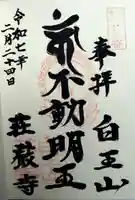 奉拝
白王山
不動明王
荘嚴寺
令和七年
二月二十四日